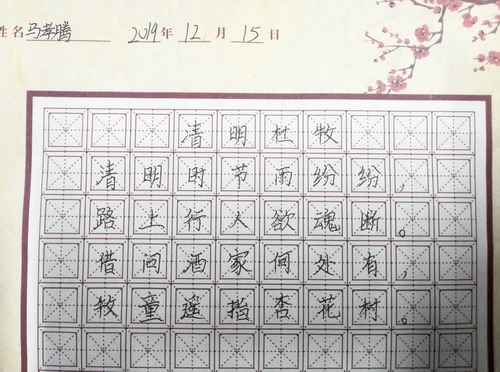 姓名马孝腾 2019年12月15日
清明杜牧
清明时节雨纷纷，
路上行人欲魂断。
借问酒家何处有，
牧童遥指杏花村。